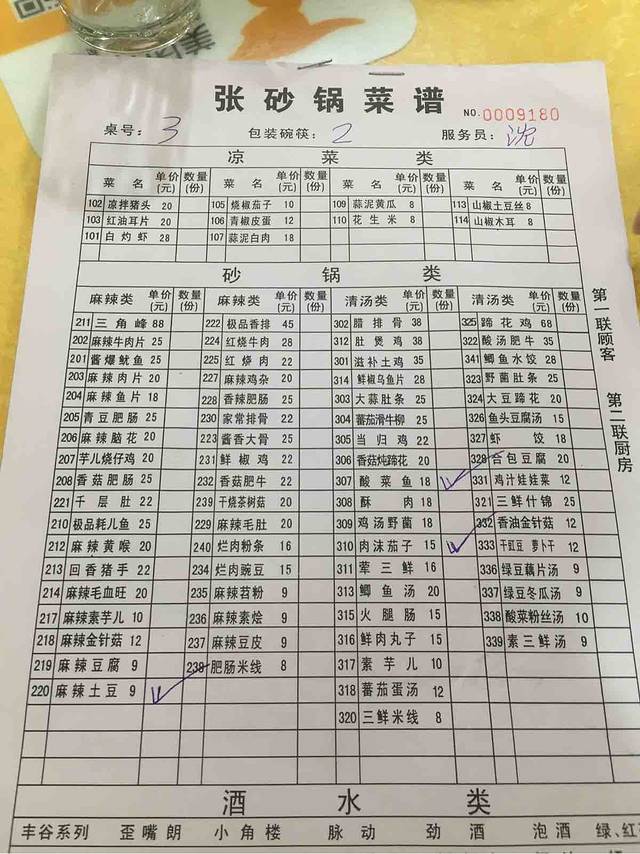 美团
张砂锅菜谱
NO. 0009180
桌号: 3 包装碗筷: 2 服务员: 沈
凉菜类
菜名 单价(元) 数量(份) 菜名 单价(元) 数量(份) 菜名 单价(元) 数量(份) 菜名 单价(元) 数量(份)
102 凉拌猪头 20 105 烧椒茄子 10 109 蒜泥黄瓜 8 113 山椒土豆丝 8
103 红油耳片 20 106 青椒皮蛋 12 110 花生米 8 114 山椒木耳 8
101 白灼虾 28 107 蒜泥白肉 18
砂锅类
麻辣类 单价(元) 数量(份) 麻辣类 单价(元) 数量(份) 清汤类 单价(元) 数量(份) 清汤类 单价(元) 数量(份)
211 三角峰 88 222 极品香排 45 302 腊排骨 38 325 蹄花鸡 68
202 麻辣牛肉片 25 224 红烧牛肉 28 312 肚煲鸡 38 322 酸汤肥牛 35
201 酱爆鱿鱼 25 225 红烧肉 22 301 滋补土鸡 35 341 鲫鱼水饺 28
203 麻辣肉片 20 227 麻辣鸡杂 20 314 鲜椒乌鱼片 28 323 野菌肚条 25
204 麻辣鱼片 18 228 香辣肥肠 25 303 大蒜肚条 25 324 大豆蹄花 20
205 青豆肥肠 25 230 家常排骨 22 304 蕃茄滑牛柳 25 326 鱼头豆腐汤 15
206 麻辣脑花 20 223 酱香大骨 25 305 当归鸡 22 327 虾饺 18
207 芋儿烧仔鸡 20 231 鲜椒鸡 22 306 香菇炖蹄花 20 328 合包豆腐 20
208 香菇肥肠 25 232 香菇肥牛 22 307 酸菜鱼 18 331 鸡汁娃娃菜 12
221 千层肚 22 239 干烧茶树菇 20 308 酥肉 18 321 三鲜什锦 25
210 极品耗儿鱼 25 229 麻辣毛肚 20 309 鸡汤野菌 18 332 香油金针菇 12
212 麻辣黄喉 20 240 烂肉粉条 16 310 肉沫茄子 15 333 干豇豆 萝卜干 12
213 回香猪手 22 234 烂肉豌豆 15 311 荤三鲜 16 336 绿豆藕片汤 9
214 麻辣毛血旺 20 235 麻辣苕粉 9 313 鲫鱼汤 20 337 绿豆冬瓜汤 9
217 麻辣素芋儿 10 236 麻辣素烩 9 315 火腿肠 15 338 酸菜粉丝汤 9
218 麻辣金针菇 12 237 麻辣豆皮 9 316 鲜肉丸子 15 339 素三鲜汤 9
219 麻辣豆腐 9 238 肥肠米线 8 317 素芋儿 10
220 麻辣土豆 9 318 蕃茄蛋汤 12
320 三鲜米线 8
第一联顾客
第二联厨房
酒水类
丰谷系列 歪嘴朗 小角楼 脉动 劲酒 泡酒 绿、红